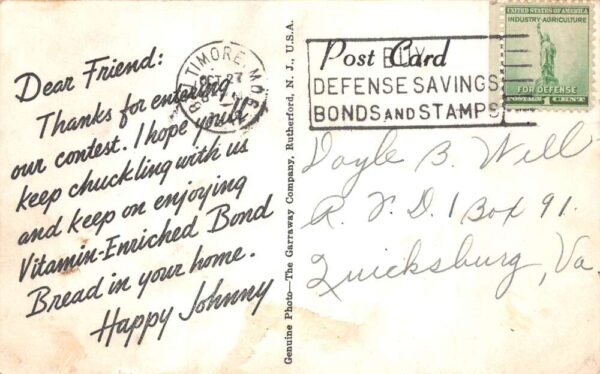 Dear Friend:
Thanks for entering
our contest. I hope you'll
keep chuckling with us
and keep on enjoying
Vitamin-Enriched Bond
Bread in your home.
Happy Johnny
Genuine Photo—The Garraway Company, Rutherford, N. J., U.S.A.
TIMORE, MD.
OCT 27
Post Card
BUY
DEFENSE SAVINGS
BONDS AND STAMPS
UNITED STATES OF AMERICA
INDUSTRY·AGRICULTURE
FOR DEFENSE
POSTAGE 1 CENT
Doyle B. Will
R. F. D. 1 Box 91.
Quicksburg, Va.